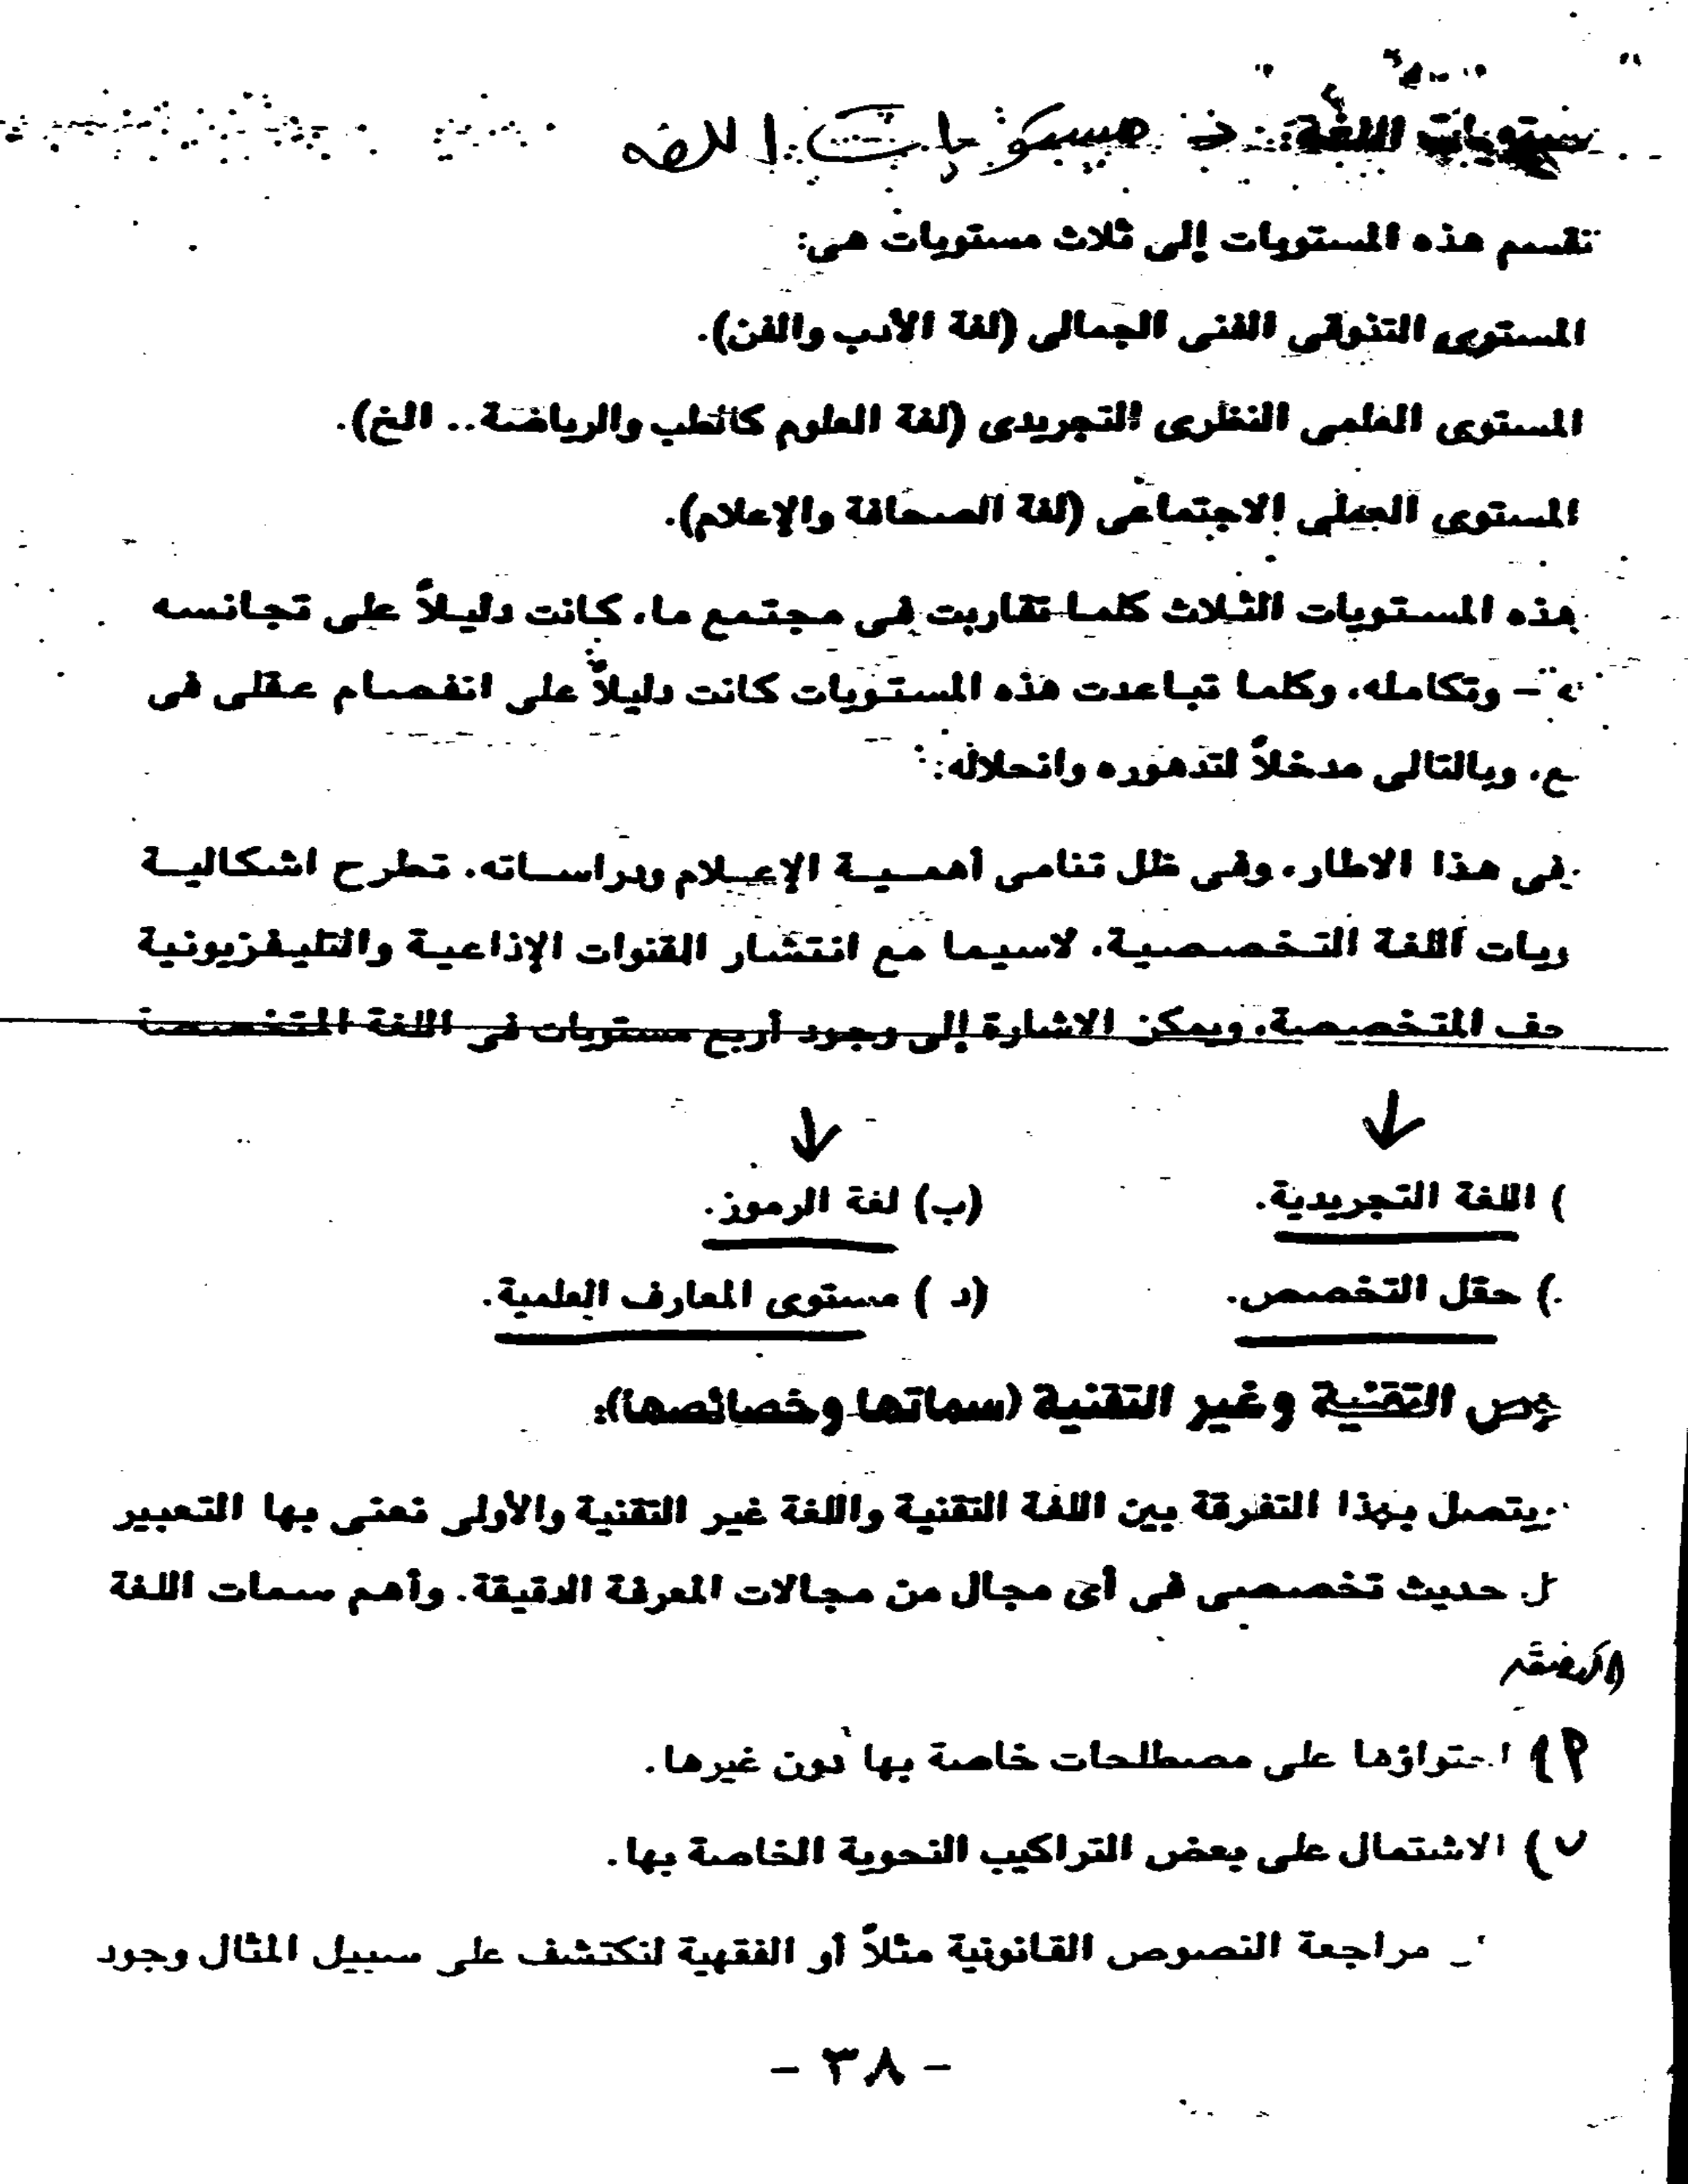 ستويات اللغة: مستويات اللغه
تقسم هذه المستويات إلى ثلاث مستويات هى:
المستوى التذوقى الفنى الجمالى (لغة الأدب والفن).
المستوى العلمى النظرى التجريدى (لغة العلوم كالطب والرياضة.. الخ).
المستوى العملى الاجتماعى (لغة الصحافة والإعلام).
هذه المستويات الثلاث كلما تقاربت فى مجتمع ما، كانت دليلاً على تجانسه
- وتكامله، وكلما تباعدت هذه المستويات كانت دليلاً على انفصام عقلى فى
ـع، وبالتالى مدخلاً لتدهوره وانحلاله:
فى هذا الاطار، وفى ظل تنامى أهمية الإعلام ودراساته، تطرح اشكالية
ويات اللغة التخصصية، لاسيما مع انتشار القنوات الإذاعية والتليفزيونية
حف المتخصصة، ويمكن الاشارة إلى وجود أربع مستويات فى اللغة المتخصصة
) اللغة التجريدية. (ب) لغة الرموز.
) حقل التخصص. (د ) مستوى المعارف العلمية.
وص التقنية وغير التقنية (سماتها وخصائصها):
ويتصل بهذا التفرقة بين اللغة التقنية واللغة غير التقنية والأولى نعنى بها التعبير
ل حديث تخصصى فى أى مجال من مجالات المعرفة الدقيقة. وأهم سمات اللغة
١) احتواؤها على مصطلحات خاصة بها دون غيرها.
) الاشتمال على بعض التراكيب النحوية الخاصة بها.
مراجعة النصوص القانونية مثلاً أو الفقهية لنكتشف على سبيل المثال وجود
- ٣٨ -